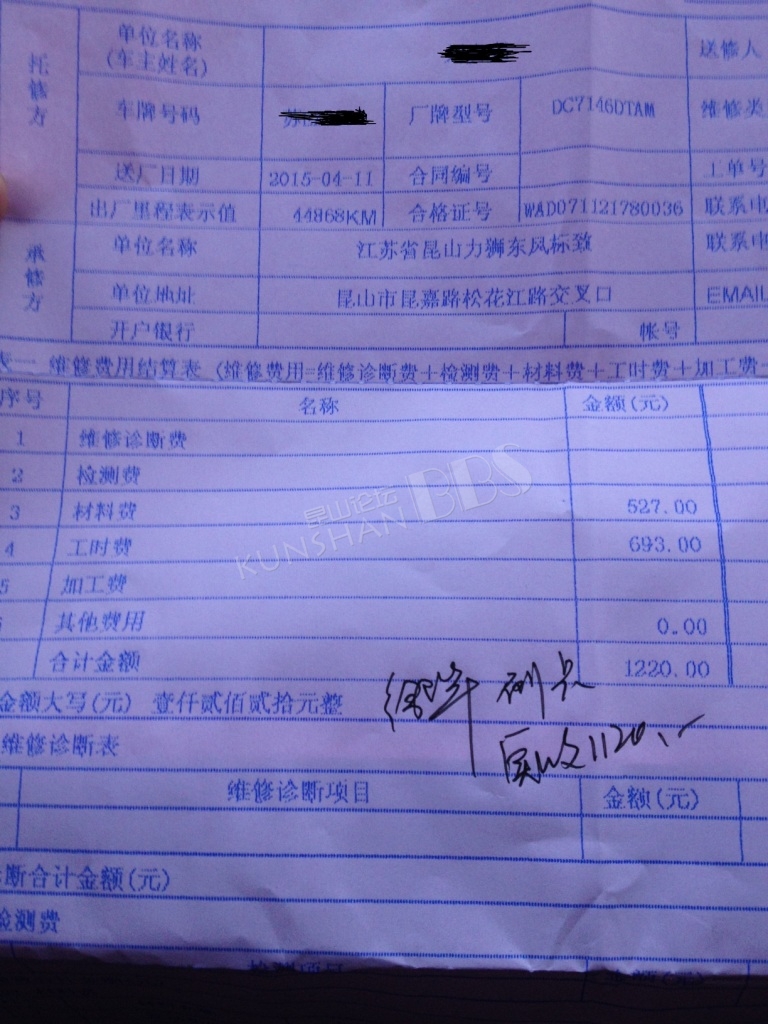 托修方
单位名称 送修人
(车主姓名)
车牌号码 厂牌型号 DC7146DTAM 维修类
送厂日期 2015-04-11 合同编号 工单号
出厂里程表示值 44868KM 合格证号 WAD071121780036 联系电
承修方
单位名称 江苏省昆山力狮东风标致 联系电
单位地址 昆山市昆嘉路松花江路交叉口 EMAIL
开户银行 帐号
表一 维修费用结算表 (维修费用=维修诊断费+检测费+材料费+工时费+加工费+
序号 名称 金额(元)
1 维修诊断费
2 检测费
3 材料费 527.00
4 工时费 693.00
5 加工费
其他费用 0.00
合计金额 1220.00
金额大写(元) 壹仟贰佰贰拾元整
刷卡
实收1120.-
维修诊断表
维修诊断项目 金额(元)
诊断合计金额(元)
检测费
检测项目 金额(元)
昆山论坛
KUNSHAN BBS